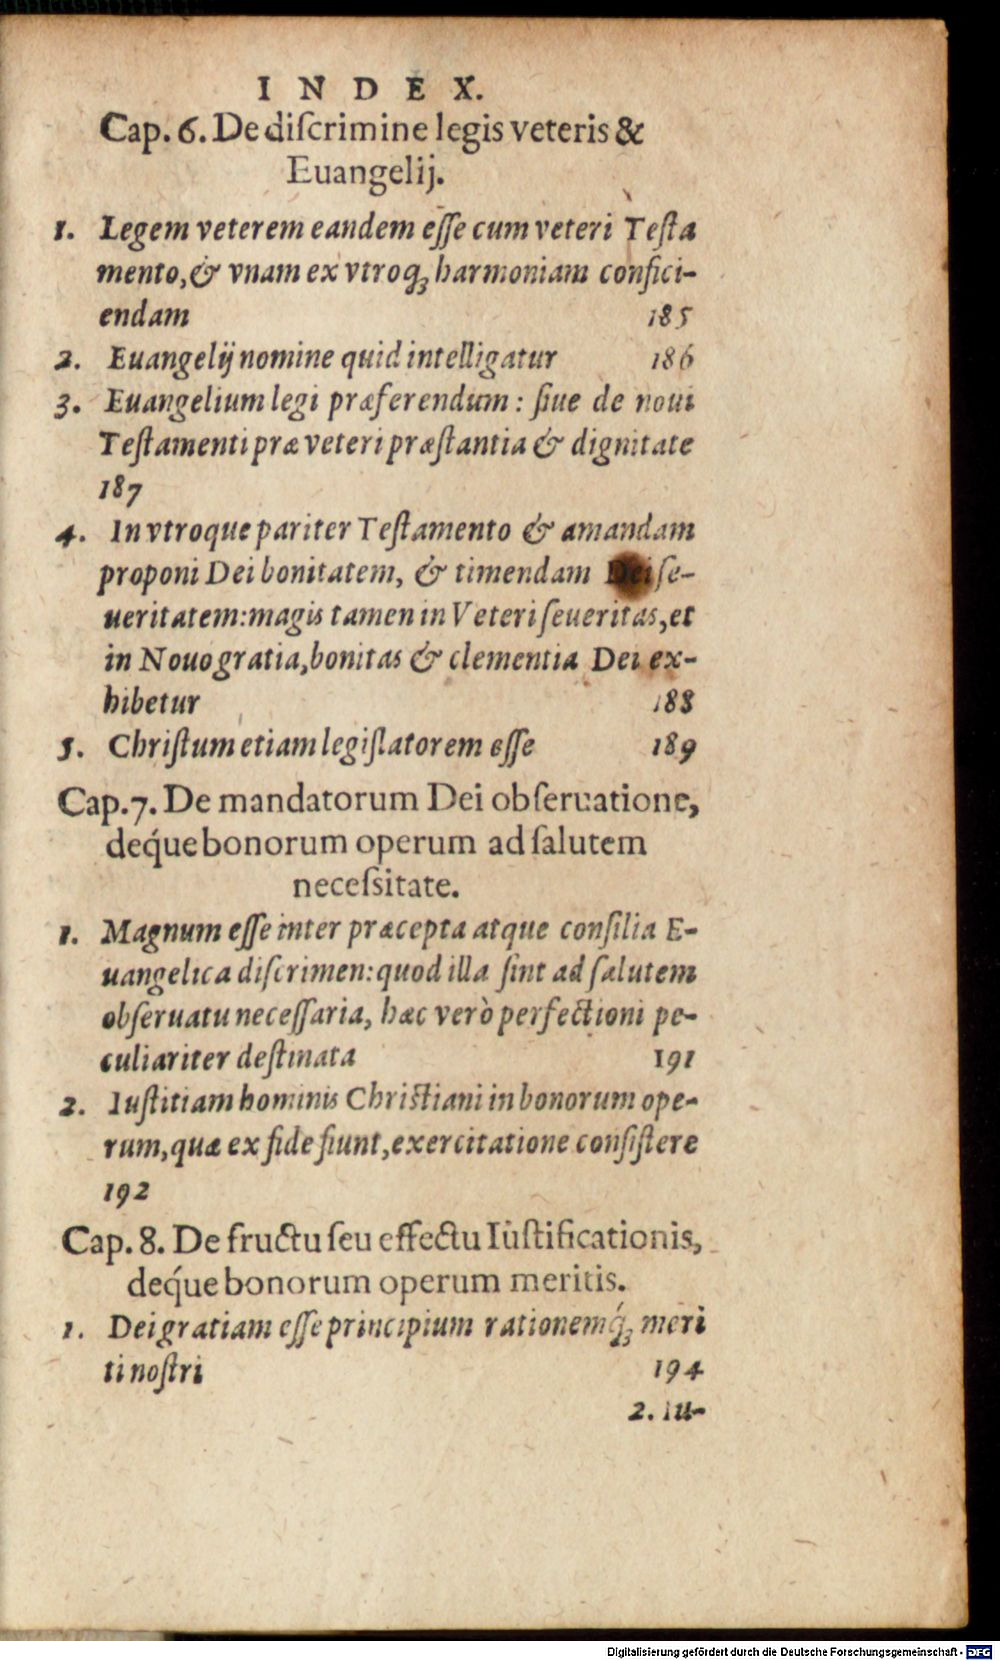 INDEX.
Cap. 6. De diſcrimine legis veteris &
Euangelij.
1. Legem veterem eandem eſſe cum veteri Teſta
mento, & vnam ex vtroq; harmoniam confici-
endam 185
2. Euangelij nomine quid intelligatur 186
3. Euangelium legi præferendum: ſiue de noui
Teſtamenti præ veteri præſtantia & dignitate
187
4. In vtroque pariter Teſtamento & amandam
proponi Dei bonitatem, & timendam Dei ſe-
ueritatem: magis tamen in Veteri ſeueritas, et
in Nouo gratia, bonitas & clementia Dei ex-
hibetur 188
5. Chriſtum etiam legiſlatorem eſſe 189
Cap. 7. De mandatorum Dei obſeruatione,
deq́ue bonorum operum ad ſalutem
neceſsitate.
1. Magnum eſſe inter præcepta atque conſilia E-
uangelica diſcrimen: quod illa ſint ad ſalutem
obſeruatu neceſſaria, hæc verò perfectioni pe-
culiariter deſtinata 191
2. Iuſtitiam hominis Chriſtiani in bonorum ope-
rum, quæ ex fide fiunt, exercitatione conſiſtere
192
Cap. 8. De fructu ſeu effectu Iuſtificationis,
deq́ue bonorum operum meritis.
1. Dei gratiam eſſe principium rationemq́; meri
ti noſtri 194
2. Iu-
Digitalisierung gefördert durch die Deutsche Forschungsgemeinschaft - DFG